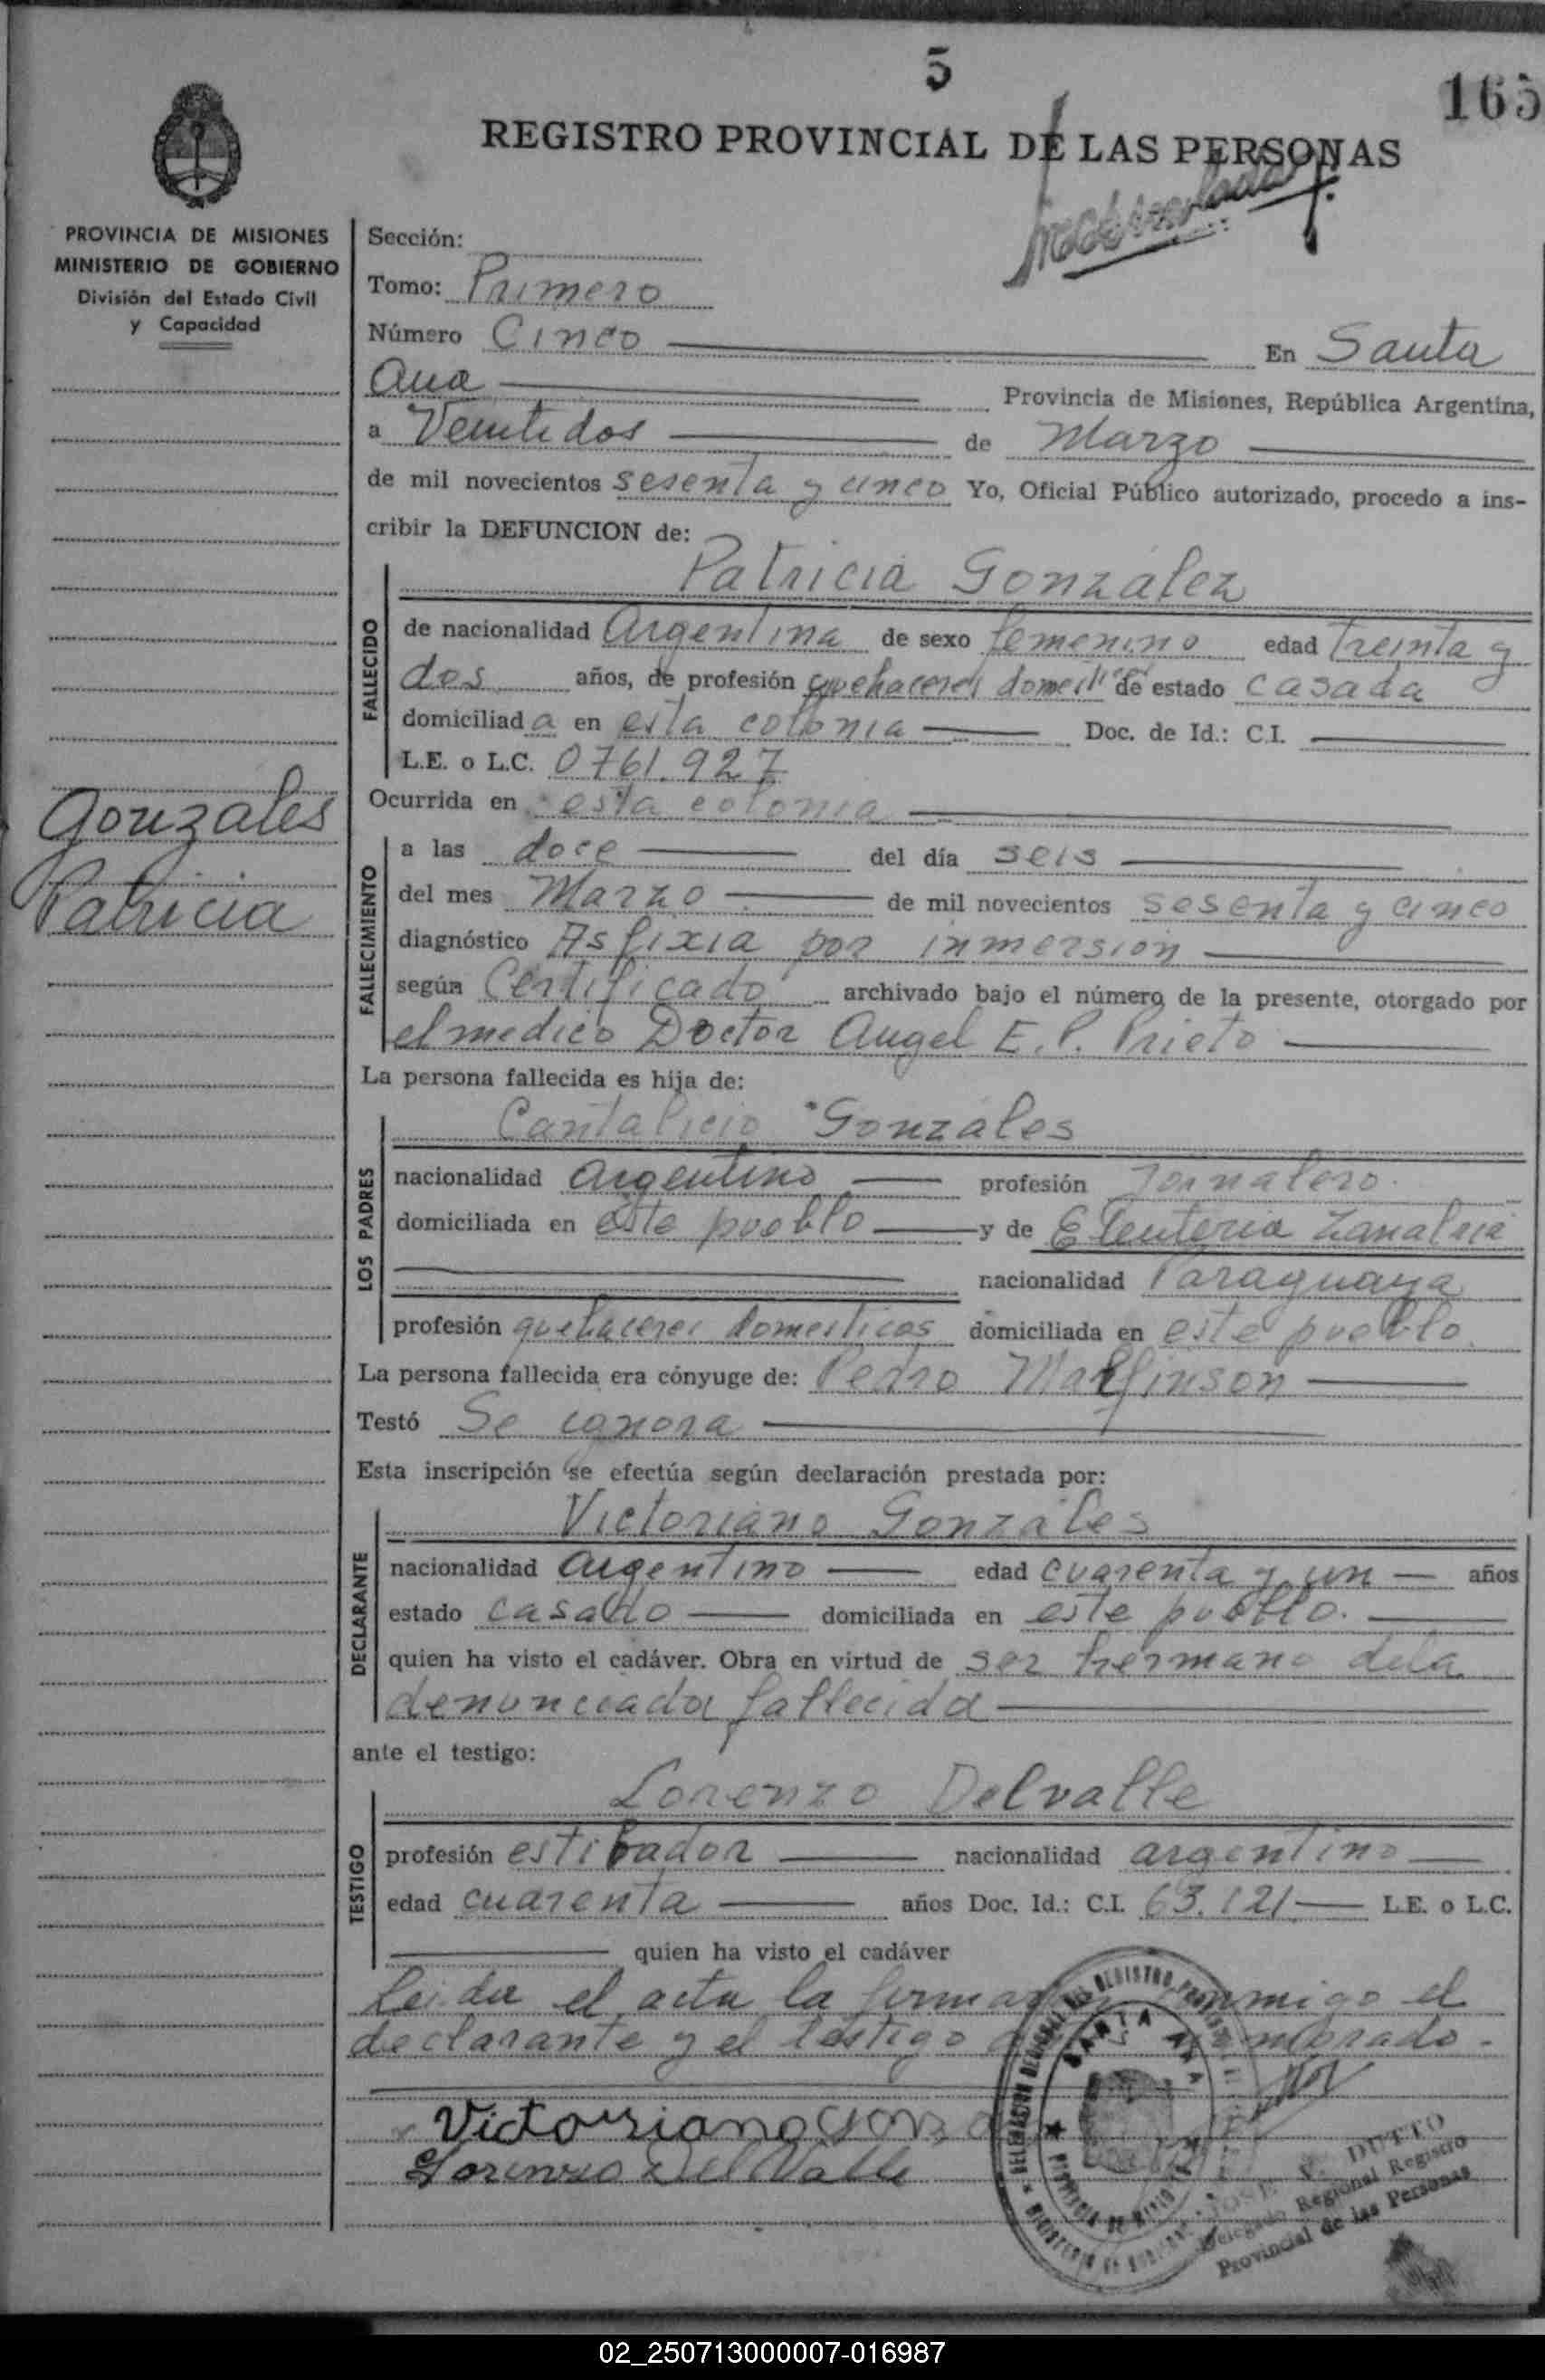 5
165
REGISTRO PROVINCIAL DE LAS PERSONAS
PROVINCIA DE MISIONES
MINISTERIO DE GOBIERNO
División del Estado Civil
y Capacidad
Gonzales
Patricia
Sección:
Tomo: Primero
Número Cinco En Santa
Ana Provincia de Misiones, República Argentina,
a Veintidos de Marzo
de mil novecientos sesenta y cinco Yo, Oficial Público autorizado, procedo a ins-
cribir la DEFUNCION de:
Patricia Gonzalez
FALLECIDO
de nacionalidad Argentina de sexo femenino edad treinta y
dos años, de profesión quehaceres domesti de estado casada
domiciliada en esta colonia Doc. de Id.: C.I.
L.E. o L.C. 0761.927
Ocurrida en esta colonia
FALLECIMIENTO
a las doce del día seis
del mes Marzo de mil novecientos sesenta y cinco
diagnóstico Asfixia por inmersion
según Certificado archivado bajo el número de la presente, otorgado por
el medico Doctor Angel E. P. Prieto
La persona fallecida es hija de:
Cantalicio Gonzales
LOS PADRES
nacionalidad argentino profesión Jornalero.
domiciliada en este pueblo y de Eleuteria
nacionalidad Paraguaya
profesión quehaceres domesticos domiciliada en este pueblo
La persona fallecida era cónyuge de: Pedro
Testó Se ignora
Esta inscripción se efectúa según declaración prestada por:
Victoriano Gonzales
DECLARANTE
nacionalidad argentino edad cuarenta y un años
estado casado domiciliada en este pueblo.
quien ha visto el cadáver. Obra en virtud de ser hermano dela
denunciada fallecida
ante el testigo:
Lorenzo Delvalle
TESTIGO
profesión estibador nacionalidad argentino
edad cuarenta años Doc. Id.: C.I. 63.121 L.E. o L.C.
quien ha visto el cadáver
Leida el acta la firman conmigo el
declarante y el testigo
Victoriano Gonz
Lorenzo Del Valle
SANTA ANA
JOSE V. DUTTO
Delegado Regional Registro
Provincial de las Personas
02_250713000007-016987